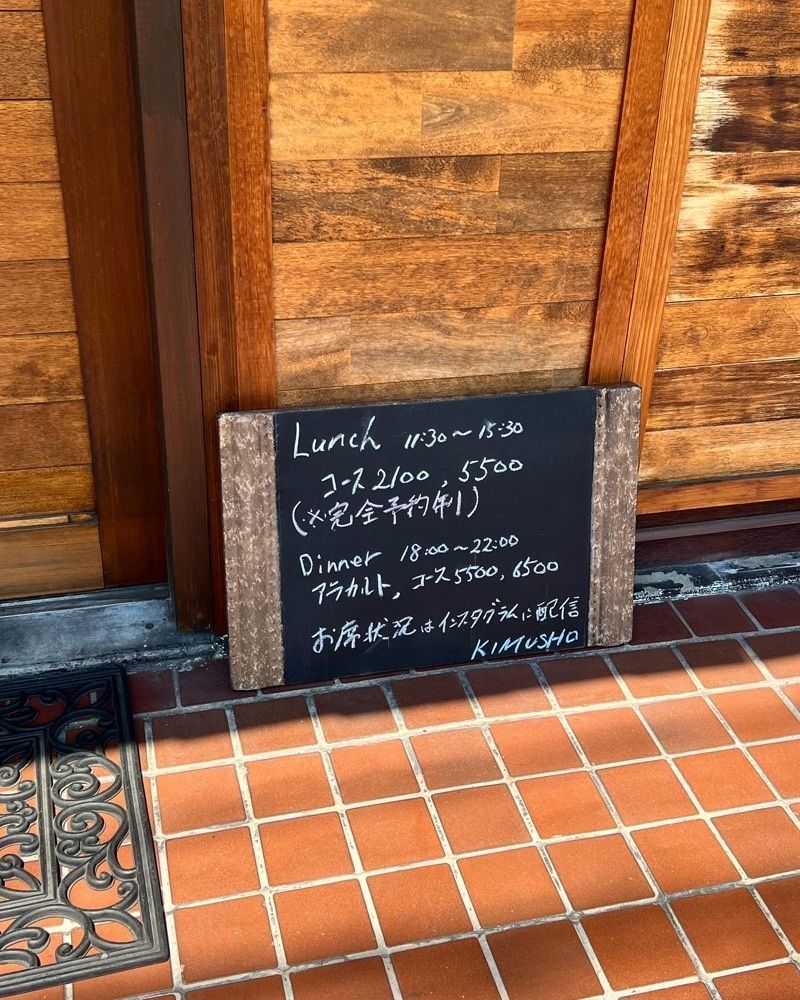 Lunch 11:30~15:30
コース2100, 5500
(※完全予約制)
Dinner 18:00~22:00
アラカルト, コース5500, 6500
お席状況はインスタグラムに配信
KIMUSHO